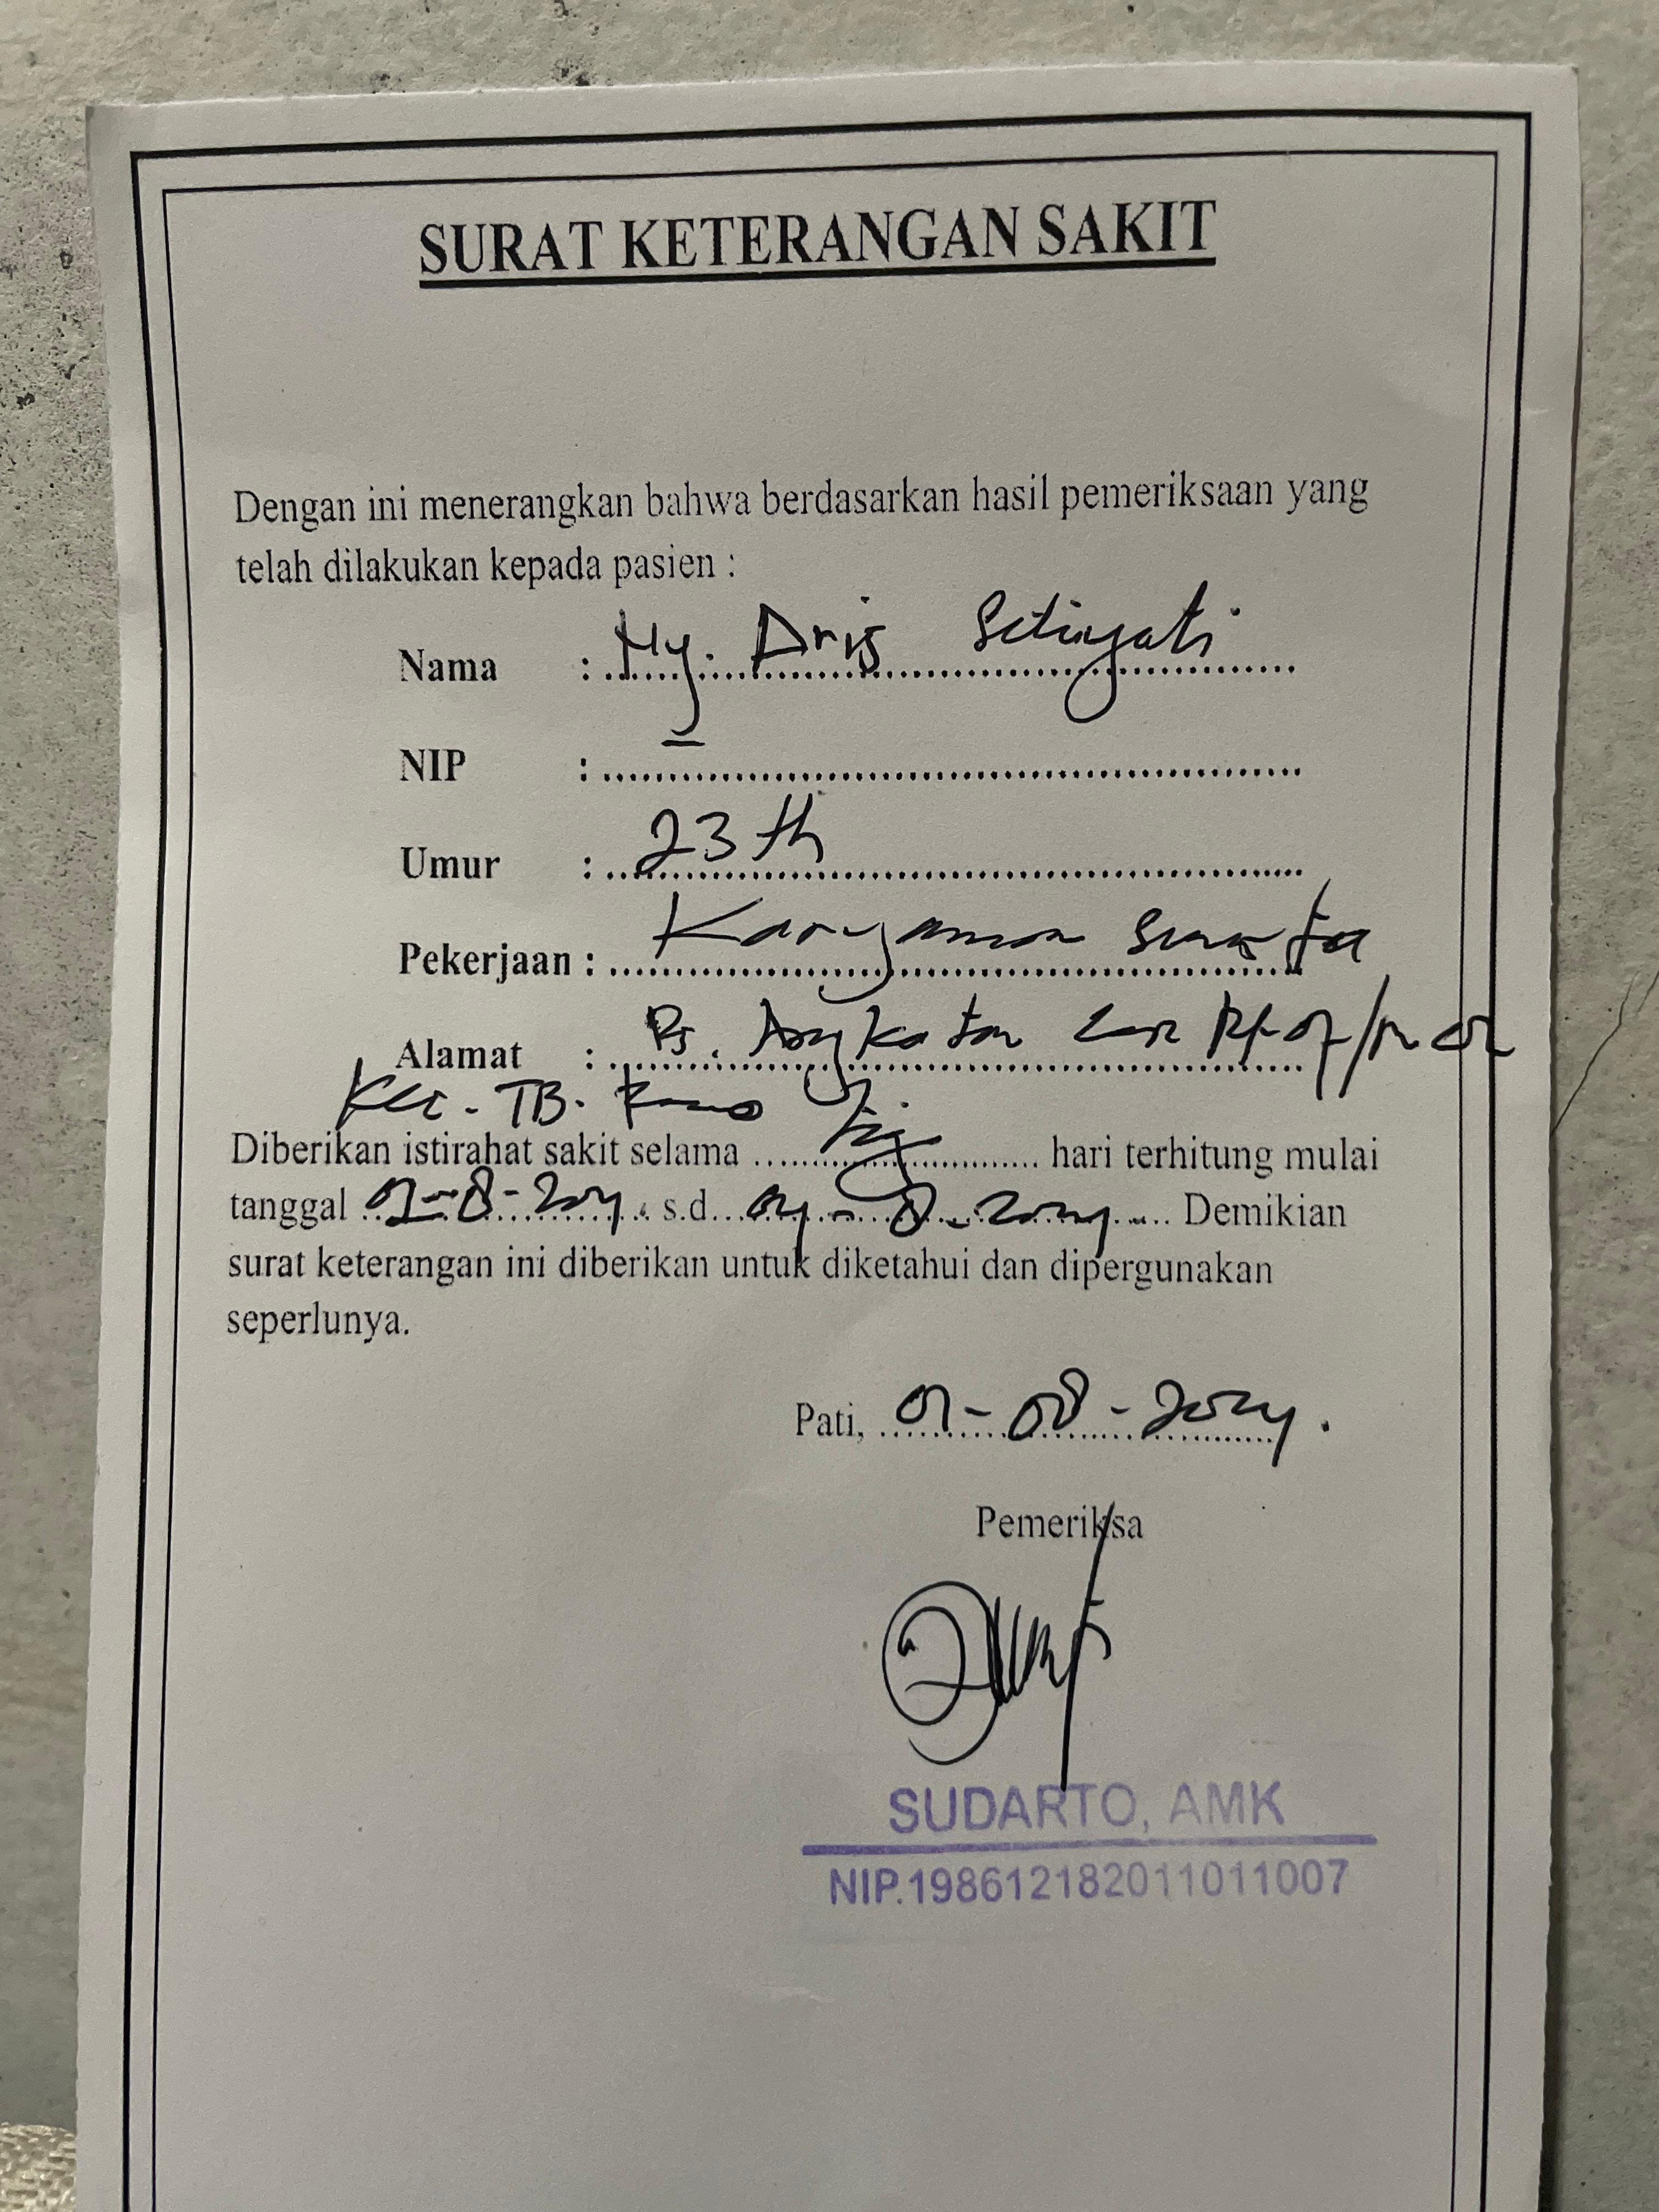 SURAT KETERANGAN SAKIT
Dengan ini menerangkan bahwa berdasarkan hasil pemeriksaan yang
telah dilakukan kepada pasien :
Nama : Ny. Setiyati
NIP :
Umur : 23 th
Pekerjaan : Karyawan Swasta
Alamat : Ds. Angkatan Lor
Kec. TB.
Diberikan istirahat sakit selama hari terhitung mulai
tanggal s.d. Demikian
surat keterangan ini diberikan untuk diketahui dan dipergunakan
seperlunya.
Pati, 01-08-2024.
Pemeriksa
SUDARTO, AMK
NIP.198612182011011007